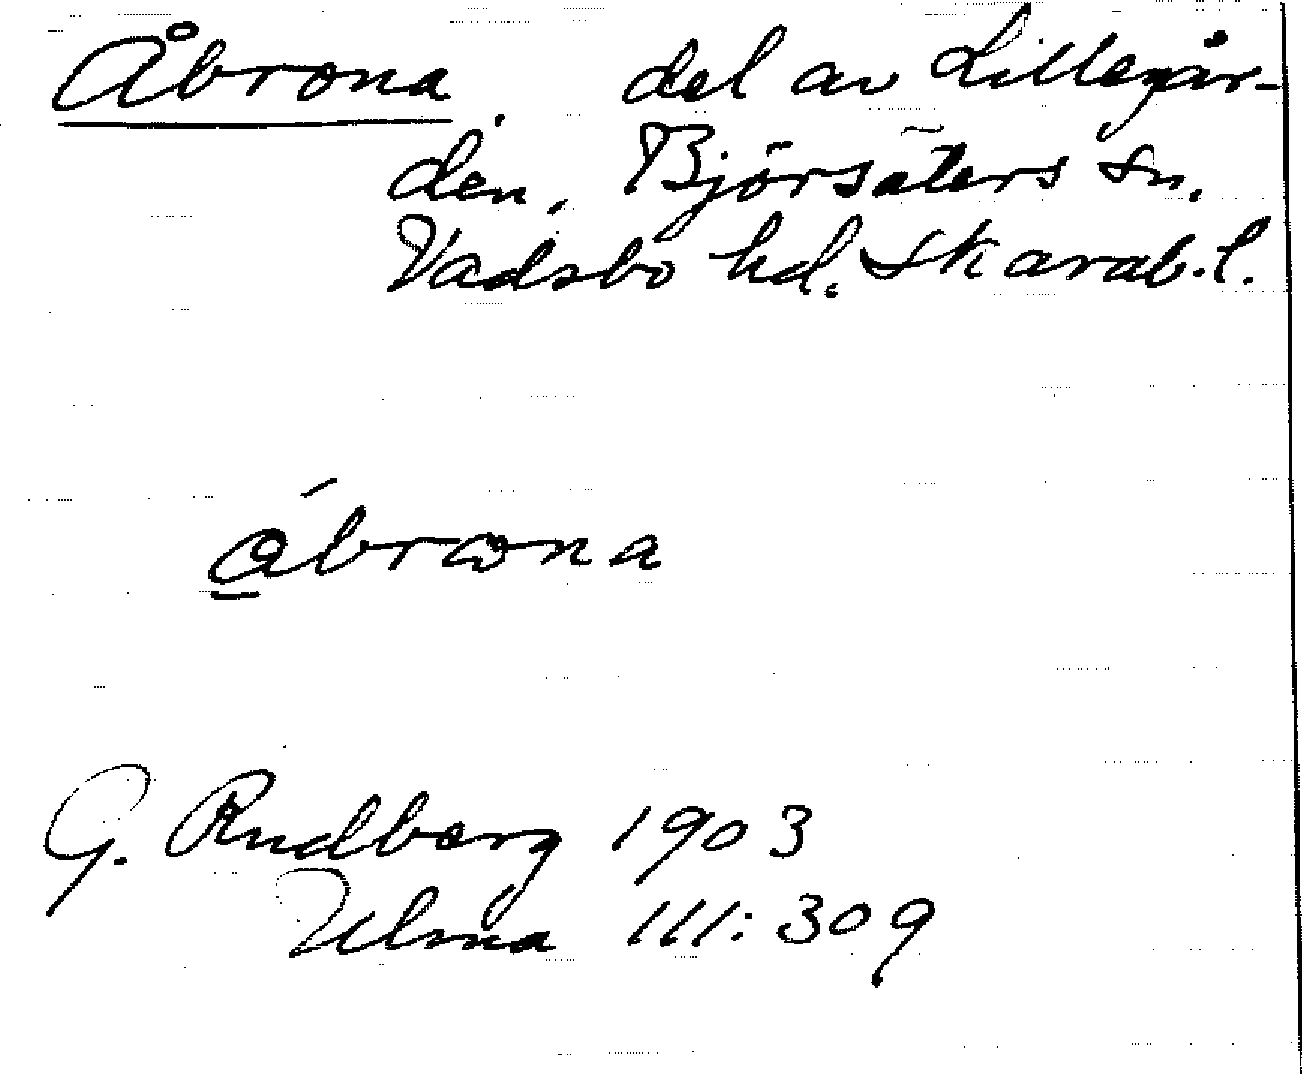 Åbrona del av Lillegår-
den, Björsäters sn.
Vadsbo hd. Skarab. l.
åbrωna
G. Rudberg 1903
Ulma 111:309